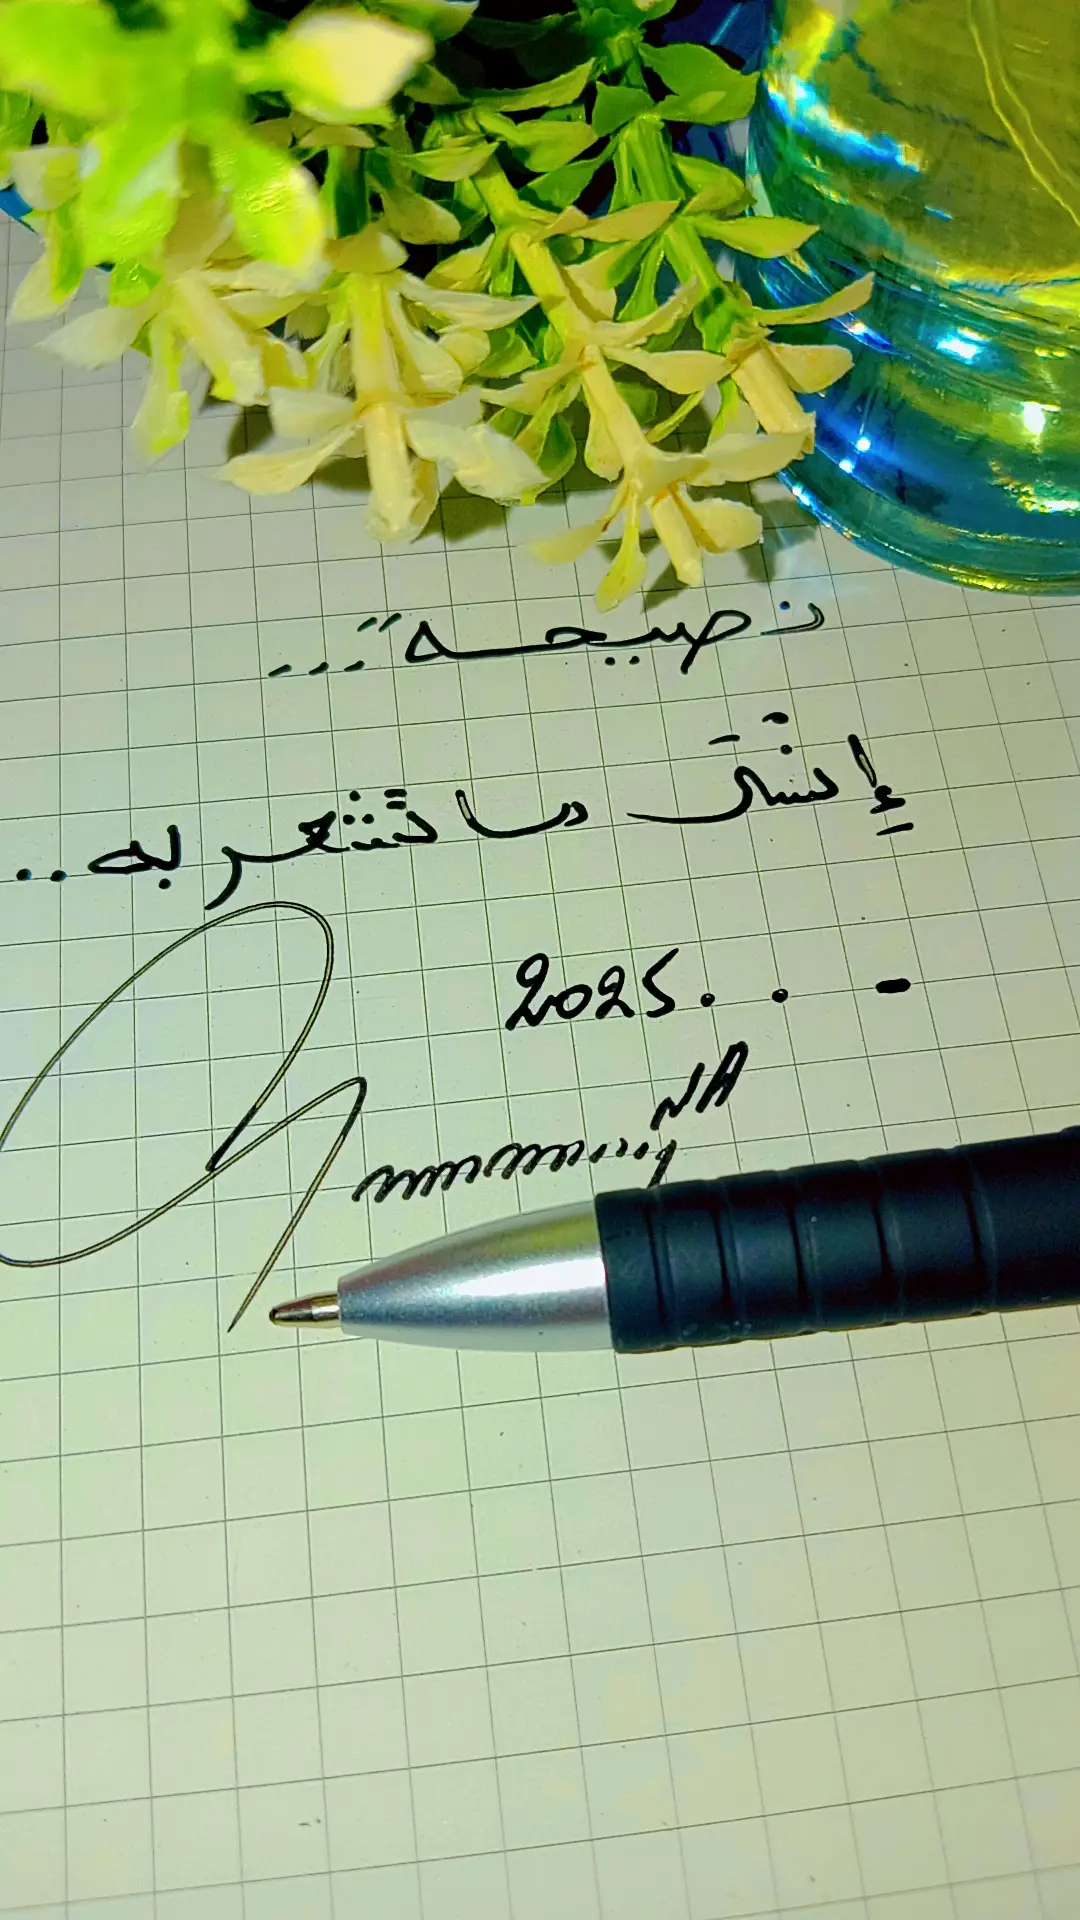 نصيحة...
إنسَ ما تشعر به..
- . . 2025
NA